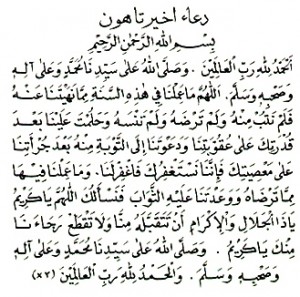 دعاء اخير تاهون
بِسْمِ اللهِ الرَّحْمٰنِ الرَّحِيْمِ
اَلْحَمْدُ لِلّٰهِ رَبِّ الْعَالَمِيْنَ . وَصَلَّى اللهُ عَلَى سَيِّدِنَا مُحَمَّدٍ وَعَلَى آلِهِ
وَصَحْبِهِ وَسَلَّمَ . اَللّٰهُمَّ مَا عَمِلْنَا فِي هٰذِهِ السَّنَةِ مِمَّا نَهَيْتَنَا عَنْهُ
فَلَمْ نَتُبْ مِنْهُ وَلَمْ تَرْضَهُ وَلَمْ تَنْسَهُ وَحَلُمْتَ عَلَيْنَا بَعْدَ
قُدْرَتِكَ عَلَى عُقُوْبَتِنَا وَدَعَوْتَنَا إِلَى التَّوْبَةِ مِنْهُ بَعْدَ جُرْأَتِنَا
عَلَى مَعْصِيَتِكَ فَإِنَّنَا نَسْتَغْفِرُكَ فَاغْفِرْلَنَا . وَمَا عَمِلْنَا فِيْهَا
مِمَّا تَرْضَاهُ وَوَعَدْتَنَا عَلَيْهِ الثَّوَابَ فَنَسْأَلُكَ اللّٰهُمَّ يَا كَرِيْمُ
يَا ذَا الْجَلَالِ وَالْإِكْرَامِ أَنْ تَتَقَبَّلَهُ مِنَّا وَلَا تَقْطَعْ رَجَاءَنَا
مِنْكَ يَا كَرِيْمُ . وَصَلَّى اللهُ عَلَى سَيِّدِنَا مُحَمَّدٍ وَعَلَى آلِهِ
وَصَحْبِهِ وَسَلَّمَ . وَالْحَمْدُ لِلّٰهِ رَبِّ الْعَالَمِيْنَ (×٣)